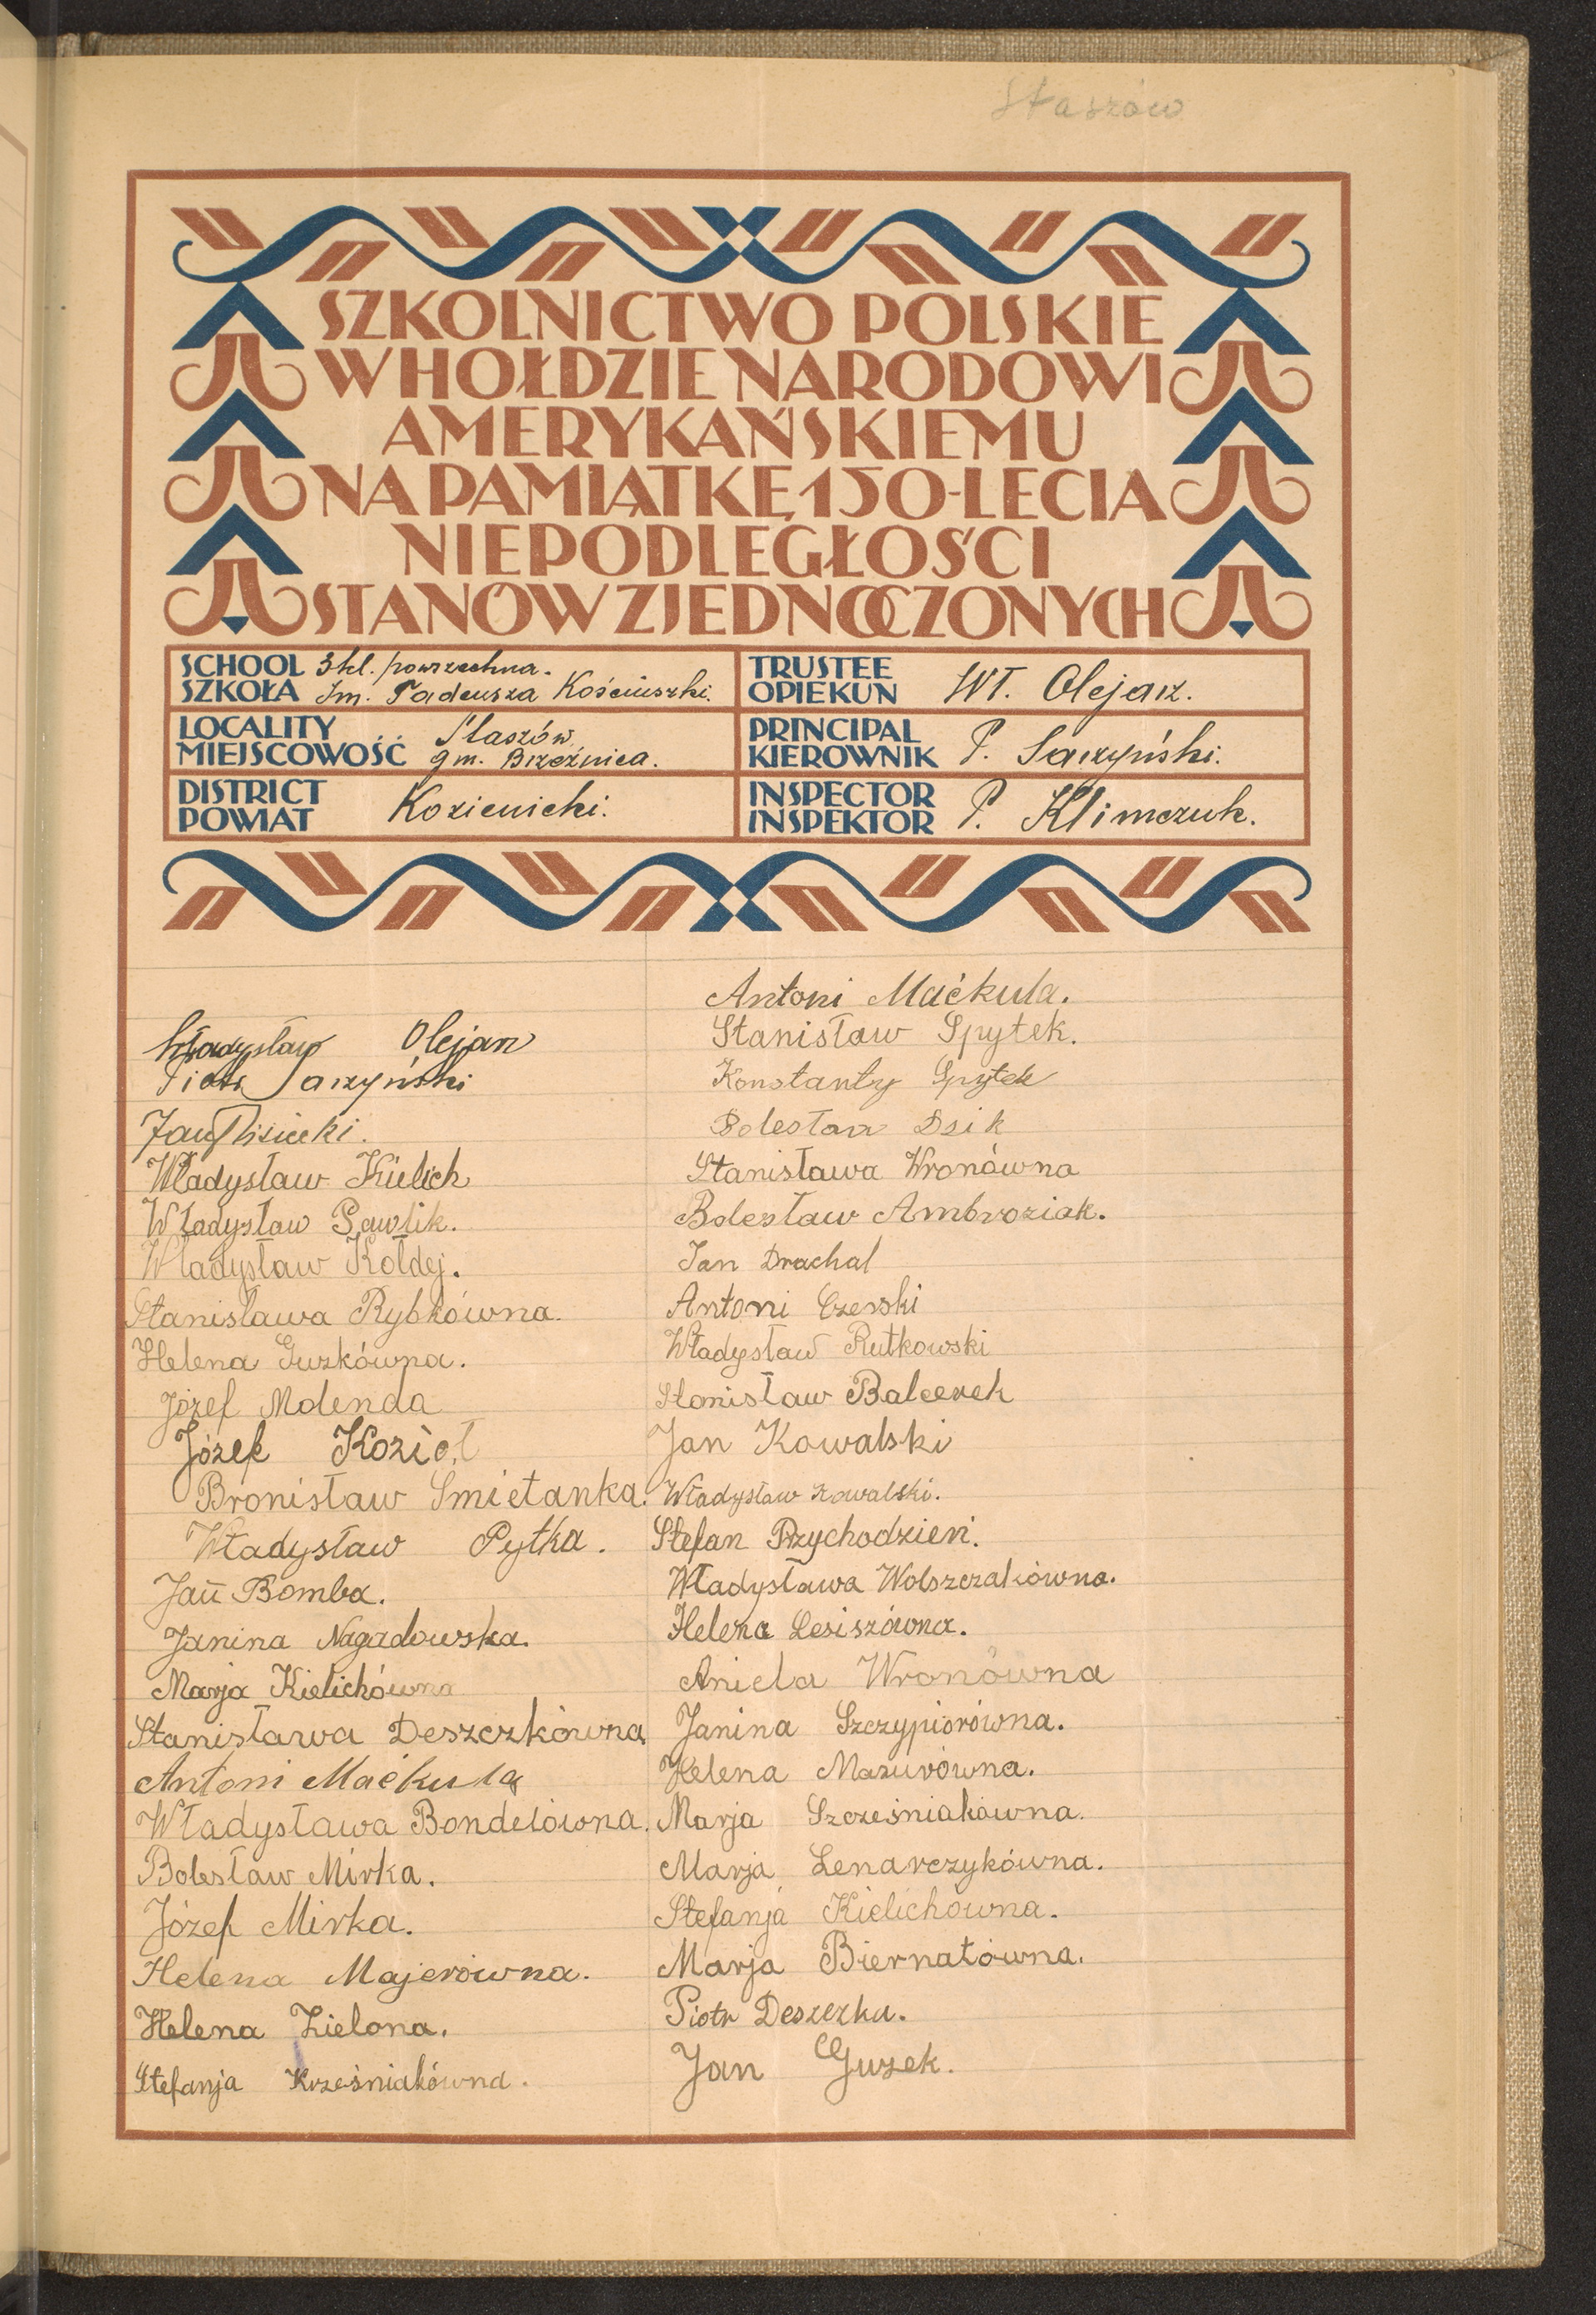 Staszów
SZKOLNICTWO POLSKIE
W HOŁDZIE NARODOWI
AMERYKAŃSKIEMU
NA PAMIĄTKĘ 150-LECIA
NIEPODLEGŁOŚCI
STANÓW ZJEDNOCZONYCH
SCHOOL
SZKOŁA
3 kl. powszechna.
im. Tadeusza Kościuszki.
TRUSTEE
OPIEKUN
Wł. Olejarz.
LOCALITY
MIEJSCOWOŚĆ
Staszów
gm. Brzeźnica.
PRINCIPAL
KIEROWNIK
P. Sarzyński.
DISTRICT
POWIAT
Kozienicki.
INSPECTOR
INSPEKTOR
P. Klimczuk.
Władysław Olejarz
Piotr Sarzyński
Jan
Władysław Kielich
Władysław Pawlik.
Władysław Kołdej.
Stanisława Rybkówna.
Helena Guzkówna.
Józef Molenda
Józef Kozioł
Bronisław Smietanka.
Władysław Pytka.
Jan Bomba.
Janina Nagadowska.
Marja Kielichówna
Stanisława Deszczkówna
Antoni Maćkula
Władysława Bondelówna.
Bolesław Mirka.
Józef Mirka.
Helena Majerówna.
Helena Zielona.
Stefanja Krześniakówna.
Antoni Maćkula.
Stanisław Spytek.
Konstanty Spytek
Bolesław Dzik
Stanisława Wronówna
Bolesław Ambroziak.
Jan Drachal
Antoni Czerski
Władysław Rutkowski
Stanisław Balcerek
Jan Kowalski
Władysław Kowalski.
Stefan Przychodzień.
Władysława Wolszczakówna.
Helena Lesiszówna.
Aniela Wronówna
Janina Szczypiorówna.
Helena Mazurówna.
Marja Szcześniakówna.
Marja Lenarczykówna.
Stefanja Kielichówna.
Marja Biernatówna.
Piotr Deszczka.
Jan Guzek.